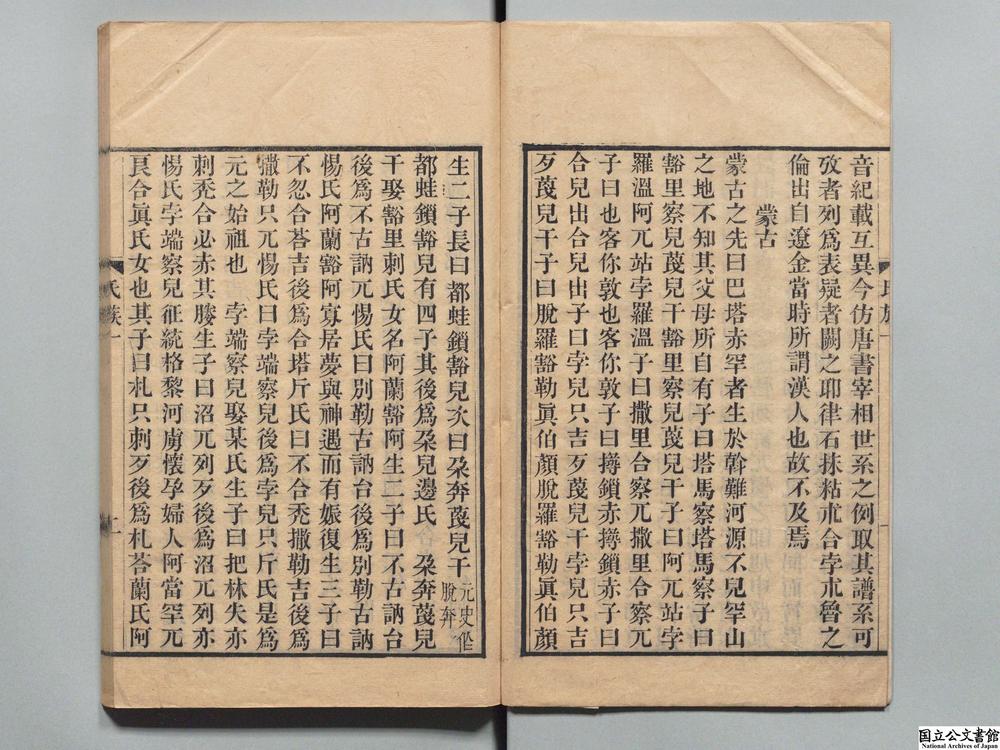 音紀載互異今仿唐書宰相世系之例取其譜系可
攷者列爲表疑者闕之耶律石抹粘朮合孛朮魯之
倫出自遼金當時所謂漢人也故不及焉
蒙古
蒙古之先曰巴塔赤罕者生於斡難河源不兒罕山
之地不知其父母所自有子曰塔馬察塔馬察子曰
豁里察兒蔑兒干豁里察兒蔑兒干子曰阿兀站孛
羅溫阿兀站孛羅溫子曰撒里合察兀撒里合察兀
子曰也客你敦也客你敦子曰撏鎖赤撏鎖赤子曰
合兒出合兒出子曰孛兒只吉歹蔑兒干孛兒只吉
歹蔑兒干子曰脫羅豁勒眞伯顏脫羅豁勒眞伯顏
生二子長曰都蛙鎖豁兒次曰朶奔蔑兒干元史作脫奔
都蛙鎖豁兒有四子其後爲朶兒邊氏 朶奔蔑兒
干娶豁里剌氏女名阿蘭豁阿生二子曰不古訥台
後爲不古訥兀惕氏曰別勒古訥台後爲別勒古訥
惕氏阿蘭豁阿寡居夢與神遇而有娠復生三子曰
不忽合荅吉後爲合塔斤氏曰不合禿撒勒吉後爲
撒勒只兀惕氏曰孛端察兒後爲孛兒只斤氏是爲
元之始祖也 孛端察兒娶某氏生子曰把林失亦
剌禿合必赤其媵生子曰沼兀列歹後爲沼兀列亦
惕氏孛端察兒征統格黎河虜懷孕婦人阿當罕兀
良合眞氏女也其子曰札只剌歹後爲札荅蘭氏阿
氏族一
十一
国立公文書館
National Archives of Japan